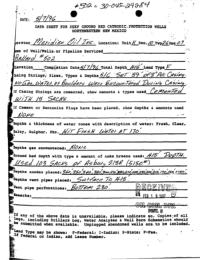 #502- 30-045-29284
DATE 5/7/96
DATA SHEET FOR DEEP GROUND BED CATHODIC PROTECTION WELLS
NORTHWESTERN NEW MEXICO
Meridian Oil Inc. Location: Unit
Name of Well/Wells or Pipeline Serviced
502
Elevation Completion Date 5/7/96 Total Depth 415 Land Type F
Casing Strings, Sizes, Types & Depths 5/6 Set 59' of 8" PVC Casing
No Gas, Water, or Boulders Were Encountered During Casing
If Casing Strings are cemented, show amounts & types used Cemented
With 18 Sacks
If Cement or Bentonite Plugs have been placed, show depths & amounts used
None
Depths & thickness of water zones with description of water: Fresh, Clear,
Salty, Sulphur, Etc. Hit Fresh Water at 170'
Depths gas encountered: None
Ground bed depth with type & amount of coke breeze used: 415' Depth
Used
Depths anodes placed:
Depths vent pipes placed: Surface To 415'
Vent pipe perforations: Bottom 280'
Remarks:
If any of the above data is unavailable, please indicate so. Copies of all
logs, including Drillers Log, Water Analyses & Well Bore Schematics should
be submitted when available. Unplugged abandoned wells are to be included.
*Land Type may be shown: F-Federal; I-Indian; S-State; P-Fee.
If Federal or Indian, add Lease Number.